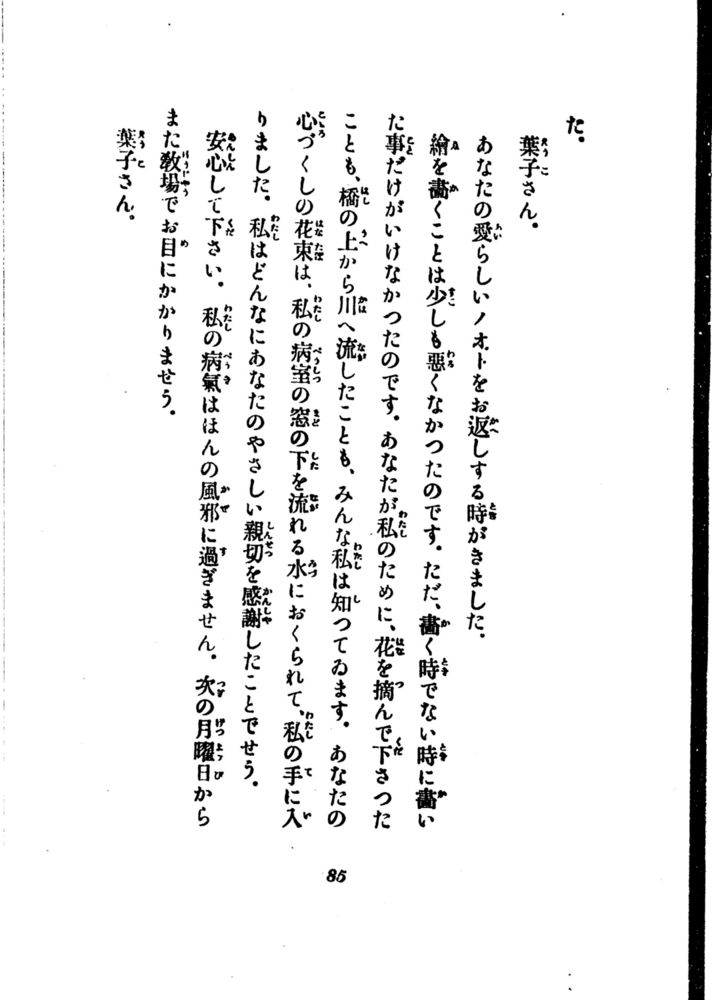 た。
葉子さん。
あなたの愛らしいノオトをお返しする時がきました。
繪を畵くことは少しも悪くなかつたのです。ただ、畵く時でない時に畵い
た事だけがいけなかつたのです。あなたが私のために、花を摘んで下さつた
ことも、橋の上から川へ流したことも、みんな私は知つてゐます。あなたの
心づくしの花束は、私の病室の窓の下を流れる水におくられて、私の手に入
りました。私はどんなにあなたのやさしい親切を感謝したことでせう。
安心して下さい。私の病氣はほんの風邪に過ぎません。次の月曜日から
また教場でお目にかかりませう。
葉子さん。
85